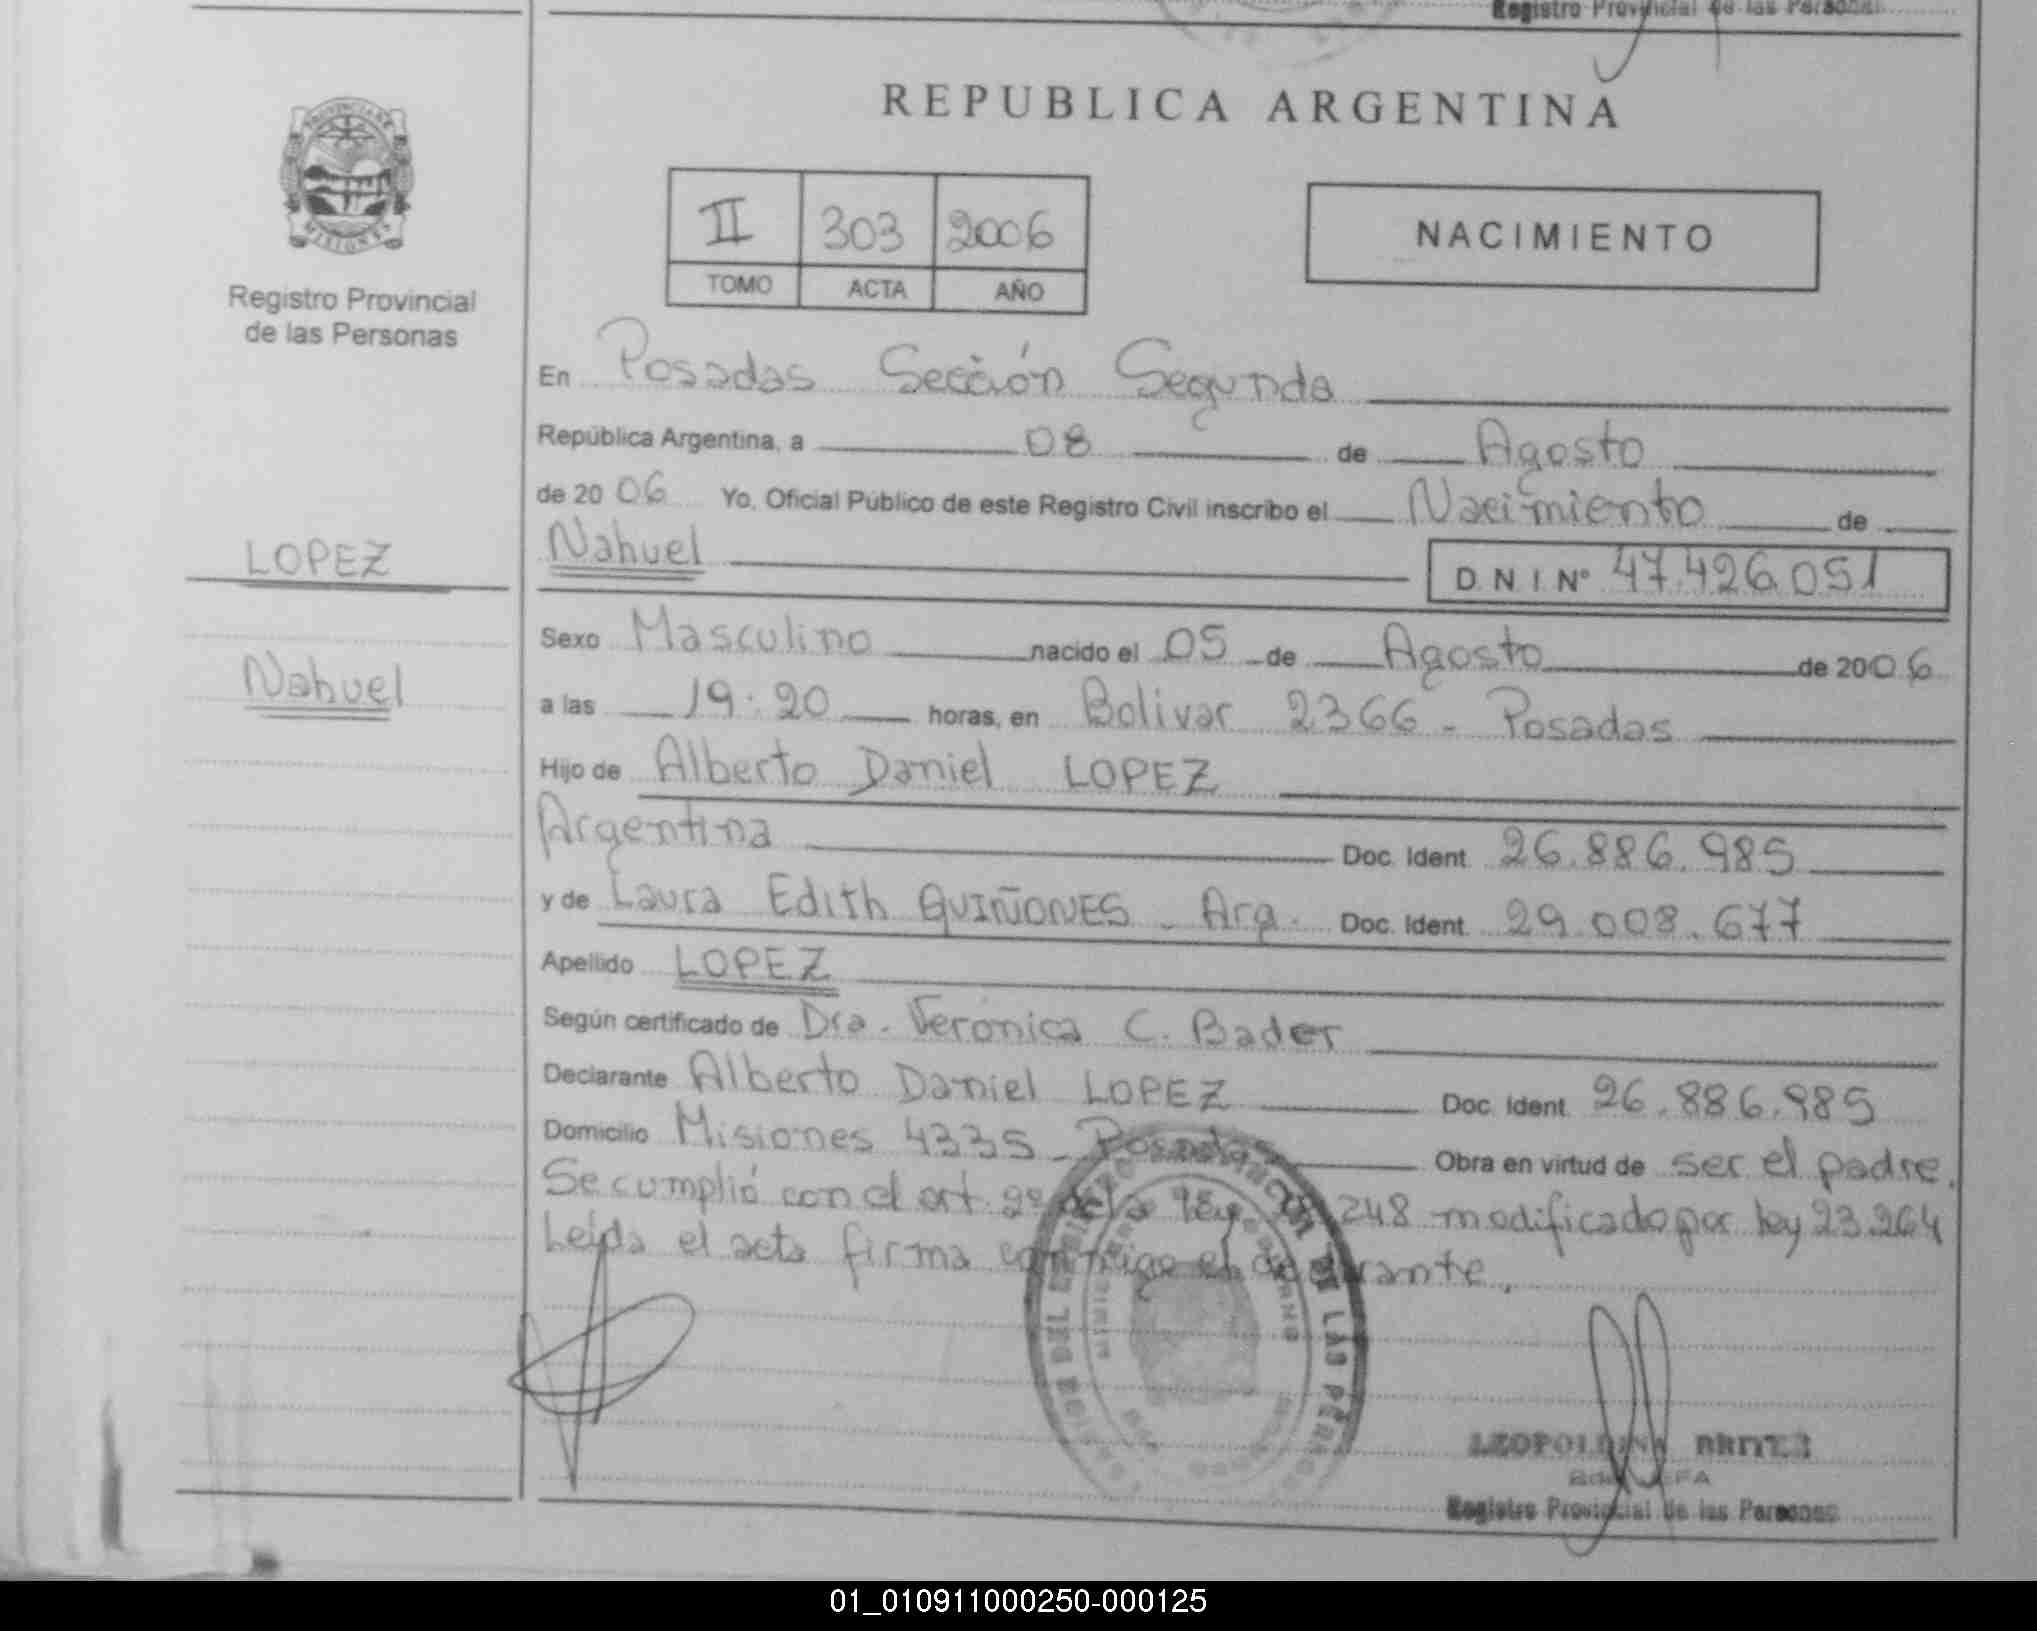 Registro Provincial de las Personas
REPUBLICA ARGENTINA
PROVINCIA DE
MISIONES
Registro Provincial
de las Personas
II 303 2006
TOMO ACTA AÑO
NACIMIENTO
En Posadas Sección Segunda
República Argentina, a 08 de Agosto
de 20 06 Yo, Oficial Público de este Registro Civil inscribo el Nacimiento de
LOPEZ
Nahuel D.N.I.Nº 47.426.051
Nahuel
Sexo Masculino nacido el 05 de Agosto de 2006
a las 19:20 horas, en Bolivar 2366 - Posadas
Hijo de Alberto Daniel LOPEZ
Argentina Doc. Ident. 26.886.985
y de Laura Edith QUIÑONES - Arg. Doc. Ident. 29.008.677
Apellido LOPEZ
Según certificado de Dra. Verónica C. Bader
Declarante Alberto Daniel LOPEZ Doc. Ident. 26.886.985
Domicilio Misiones 4335 - Posadas Obra en virtud de ser el padre.
Se cumplió con el art. 2º de la ley 248 modificado por ley 23.264
Leída el acta firma conmigo el declarante.
LEOPOLDINA BRITEZ
JEFA
Registro Provincial de las Personas
01_010911000250-000125